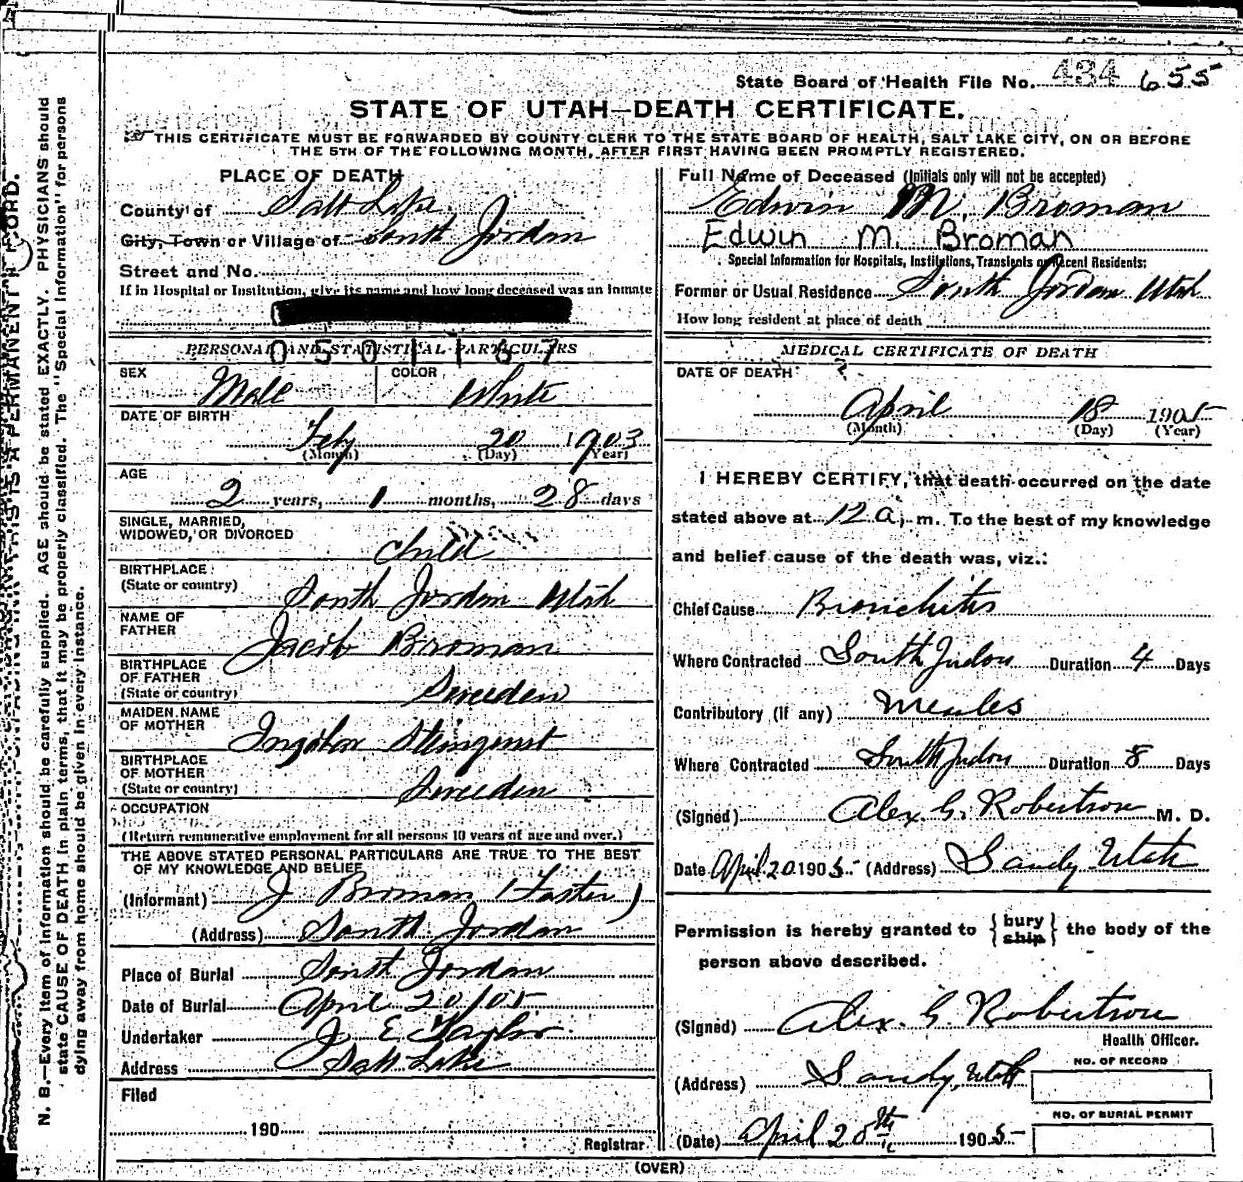 State Board of Health File No. 434 655
STATE OF UTAH—DEATH CERTIFICATE.
THIS CERTIFICATE MUST BE FORWARDED BY COUNTY CLERK TO THE STATE BOARD OF HEALTH, SALT LAKE CITY, ON OR BEFORE
THE 5TH OF THE FOLLOWING MONTH, AFTER FIRST HAVING BEEN PROMPTLY REGISTERED.
PLACE OF DEATH
County of Salt Lake
City, Town or Village of South Jordan
Street and No.
If in Hospital or Institution, give its name and how long deceased was an inmate
0501167
PERSONAL AND STATISTICAL PARTICULARS
SEX Male COLOR White
DATE OF BIRTH
Feby 20 1903
(Month) (Day) (Year)
AGE
2 years, 1 months, 28 days
SINGLE, MARRIED,
WIDOWED, OR DIVORCED child
BIRTHPLACE
(State or country) South Jordan Utah
NAME OF
FATHER Jacob Broman
BIRTHPLACE
OF FATHER
(State or country) Sweeden
MAIDEN NAME
OF MOTHER
BIRTHPLACE
OF MOTHER
(State or country) Sweeden
OCCUPATION
(Return remunerative employment for all persons 10 years of age and over.)
THE ABOVE STATED PERSONAL PARTICULARS ARE TRUE TO THE BEST
OF MY KNOWLEDGE AND BELIEF
(Informant) J Broman (Father)
(Address) South Jordan
Place of Burial South Jordan
Date of Burial April 20/05
Undertaker J E Taylor
Address Salt Lake
Filed
190
Registrar
Full Name of Deceased (Initials only will not be accepted)
Edwin M. Broman
Edwin M. Broman
Special Information for Hospitals, Institutions, Transients or Recent Residents:
Former or Usual Residence South Jordan Utah
How long resident at place of death
MEDICAL CERTIFICATE OF DEATH
DATE OF DEATH
April 18 1905
(Month) (Day) (Year)
I HEREBY CERTIFY, that death occurred on the date
stated above at 12 a. m. To the best of my knowledge
and belief cause of the death was, viz.:
Chief Cause Bronchitis
Where Contracted South Jordon Duration 4 Days
Contributory (if any) Measles
Where Contracted South Jordon Duration 8 Days
(Signed) Alex. G. Robertson M. D.
Date April 20 1905 (Address) Sandy Utah
Permission is hereby granted to {bury ship} the body of the
person above described.
(Signed) Alex. G. Robertson
Health Officer.
(Address) Sandy, Utah
NO. OF RECORD
NO. OF BURIAL PERMIT
(Date) April 20th 1905
(OVER)
N. B.—Every item of information should be carefully supplied. AGE should be stated EXACTLY. PHYSICIANS should
state CAUSE OF DEATH in plain terms, that it may be properly classified. The "Special Information" for persons
dying away from home should be given in every instance.
THIS IS A PERMANENT RECORD.